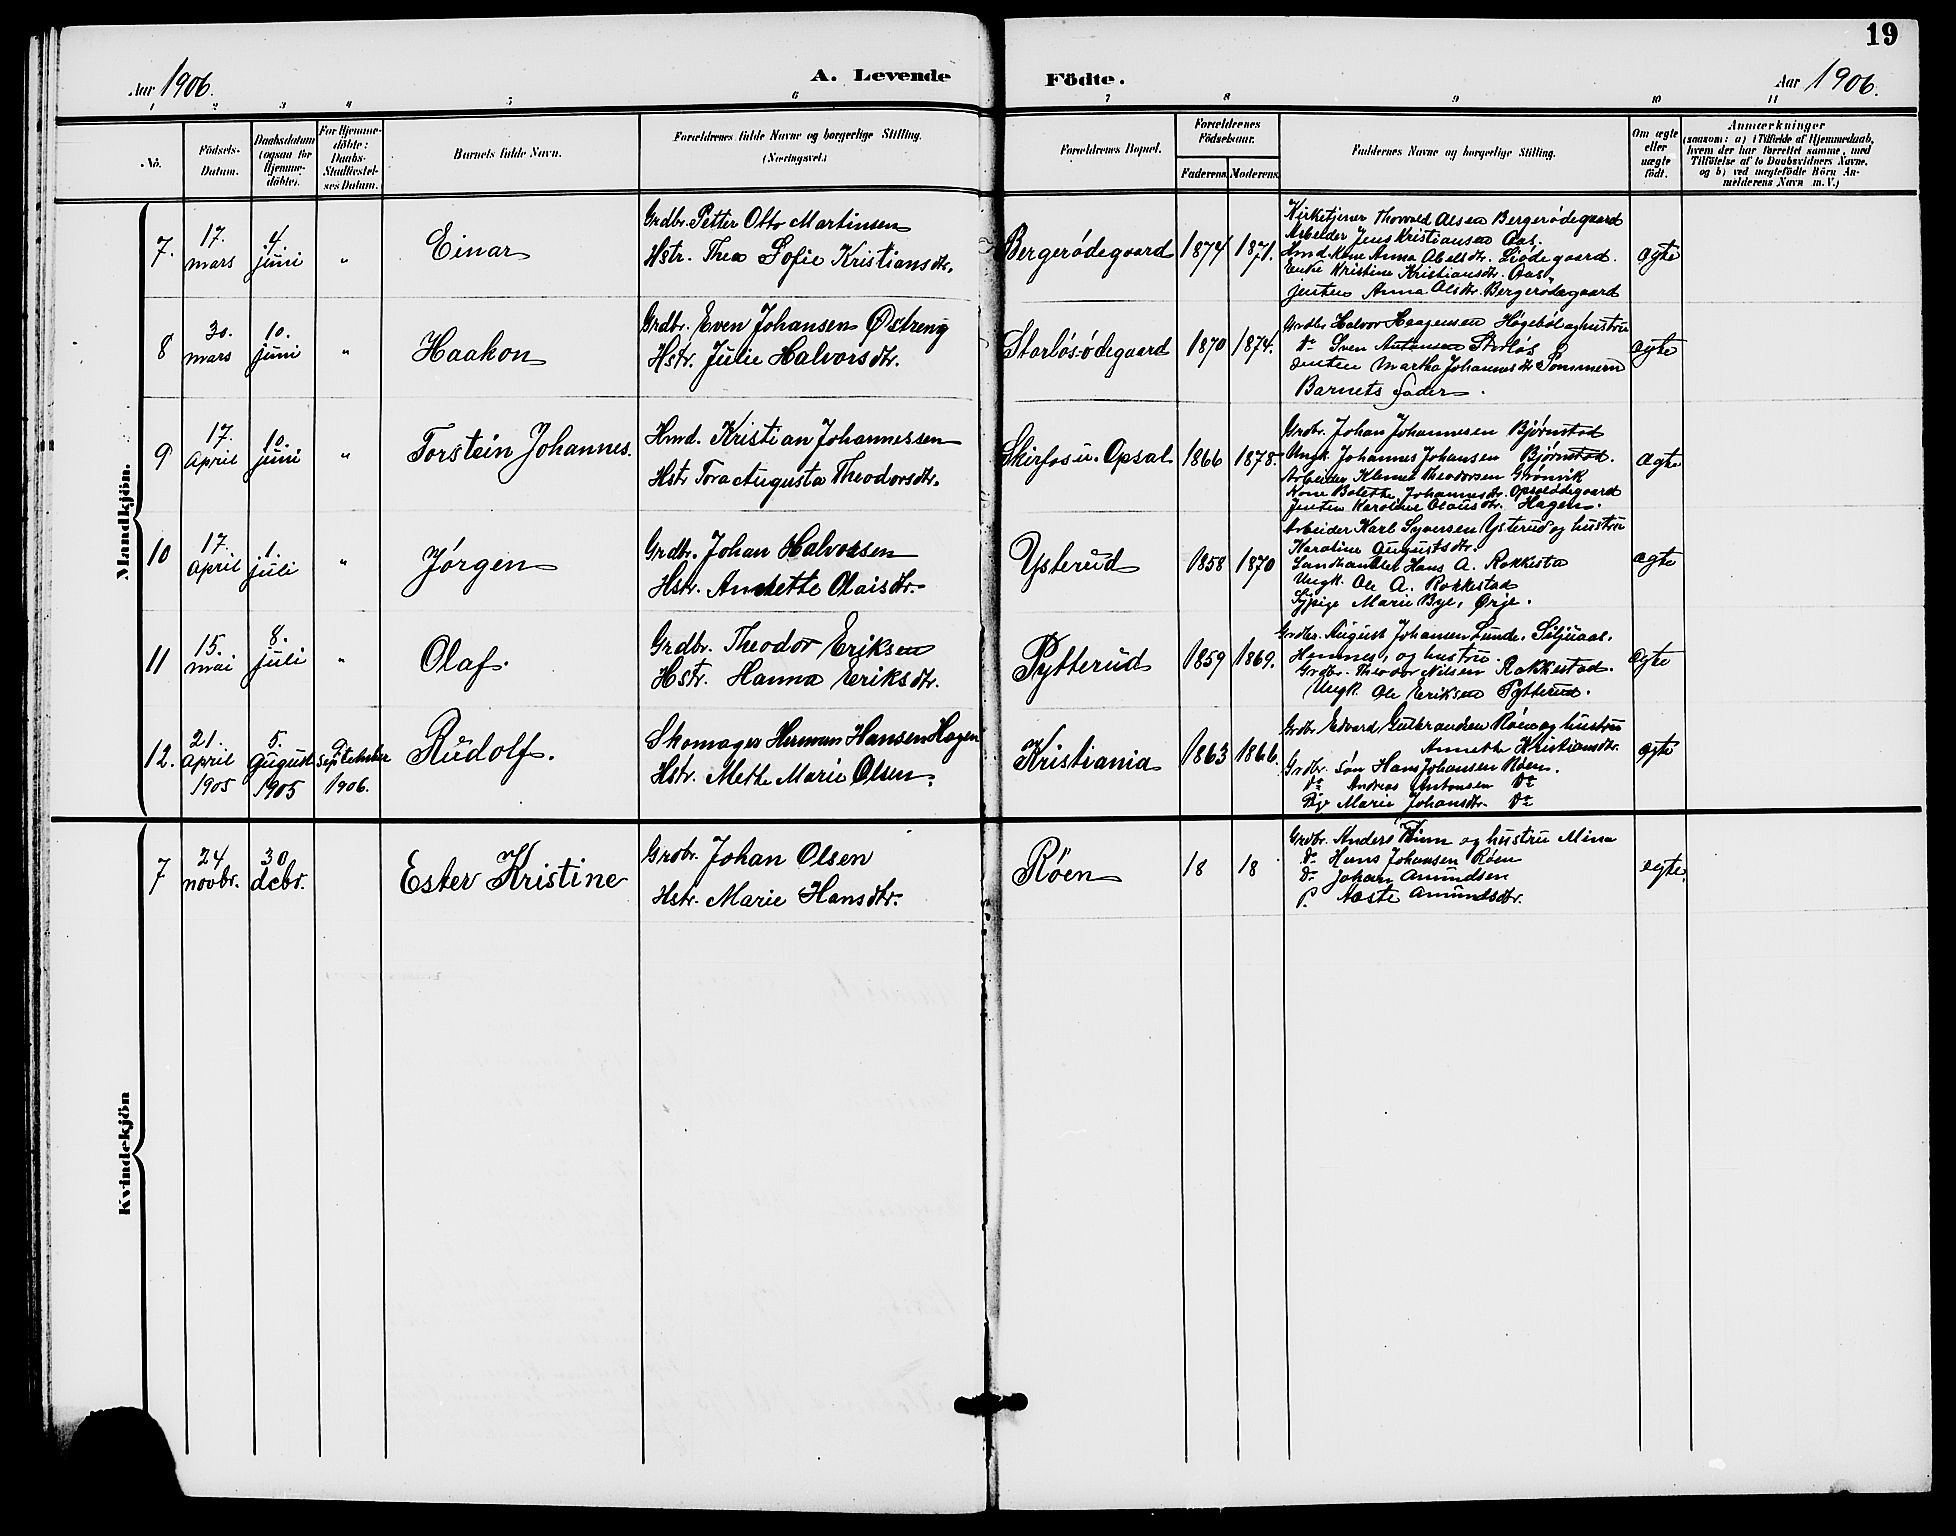 19
Aar 1906.
A. Levende Födte.
Aar 1906.
1 2 3 4 5 6 7 8 9 10 11
No.
Födsels-
Datum.
Daabsdatum
(ogsaa for
Hjemme-
döbte).
For Hjemme-
döbte:
Daabs-
Stadfæstel-
ses Datum.
Barnets fulde Navn.
Forældrenes fulde Navne og borgerlige Stilling.
(Næringsvei.)
Forældrenes Bopæl.
Forældrenes
Födselsaar.
Faderens. Moderens.
Faddernes Navne og borgerlige Stilling.
Om ægte
eller
uægte
födt.
Anmærkninger
(saasom: a) i Tilfælde af Hjemmedaab,
hvem der har forrettet samme, med
Tilföielse af to Daabsvidners Navne,
og b) ved uægtefödte Börn An-
melderens Navn m. V.)
Mandkjön.
7. 17. mars 4. juni " Einar
Grdbr. Petter Otto Martinsen
Hstr. Thea Sofie Kristiansdtr.
Bergerödegaard 1874 1871.
Kirketjener Thorvald Olsen Bergerödegaard
Arbeider Jens Kristiansen Aas.
Hmd. Kone Anna Abelsdtr. Liödegaard.
Enke Kristine Kristiansdtr. Aas
Jenten Anna Olsdtr. Bergerödegaard
ægte
8 30. mars 10. juni " Haakon
Grdbr. Even Johansen Østreng
Hstr. Julie Halvorsdtr.
Storlös-ödegaard 1870 1874.
Grdbr. Halvor Haagensen Högeböl og hustru
do Sven Antonsen Storlös
Jenten Martha Johannesdtr Sommern
Barnets fader.
ægte
9 17. April 10. juni " Torstein Johannes.
Hmd. Kristian Johannessen
Hstr Tora Augusta Theodorsdtr.
Skirfos u. Opsal 1866 1878.
Grdbr. Johan Johannesen Bjørnstad
Ungk. Johannes Johansen Bjørnstad.
Arbeider Klemet Theodorsen Grönvik
Kone Bolette Johannesdtr. Opsalödegaard
Jenten Karoline Olausdtr. Hagen.
Ægte
10 17. April 1. juli " Jørgen
Grdbr. Johan Halvorsen
Hstr. Annette Olaisdtr.
Ysterud 1858 1870
Arbeider Karl Syversen Ysterud og hustru
Karoline Augustsdtr.
Landhandler Hans A. Rakkesta
Ungk. Ole A. Rakkestad
Sypige Marie Bye, Ørje.
ægte
11 15. mai 8. juli " Olaf.
Grdbr. Theodor Eriksen
Hstr. Hanna Eriksdtr.
Pytterud 1859 1869.
Grdbr. August Johansen Lunde.
Hemnes, og hustru.
Grdbr. Theodor Nilsen Rakkestad.
Ungk. Ole Eriksen Pytterud.
ægte
12. 21. April 1905 5. August 1905 9. September 1906. Rudolf.
Skomager Herman Hansen Hagen
Hstr. Mette Marie Olsen.
Kristiania 1863 1866.
Grdbr Edvard Gulbrandsen Röen og hustru
Annette Kristiansdtr.
Grdbr. Søn Hans Johansen Röen.
do Andreas Antonsen do
Pige Marie Johansdtr. do
ægte
Kvindekjön
7 24 novbr. 30 dcbr. Ester Kristine
Grdbr. Johan Olsen
Hstr. Marie Hansdtr.
Röen 18 18
Grdbr. Anders Tinn og hustru Mina
do Hans Johansen Röen
do Johan Amundsen
P. Næste Amundsdtr.
ægte.